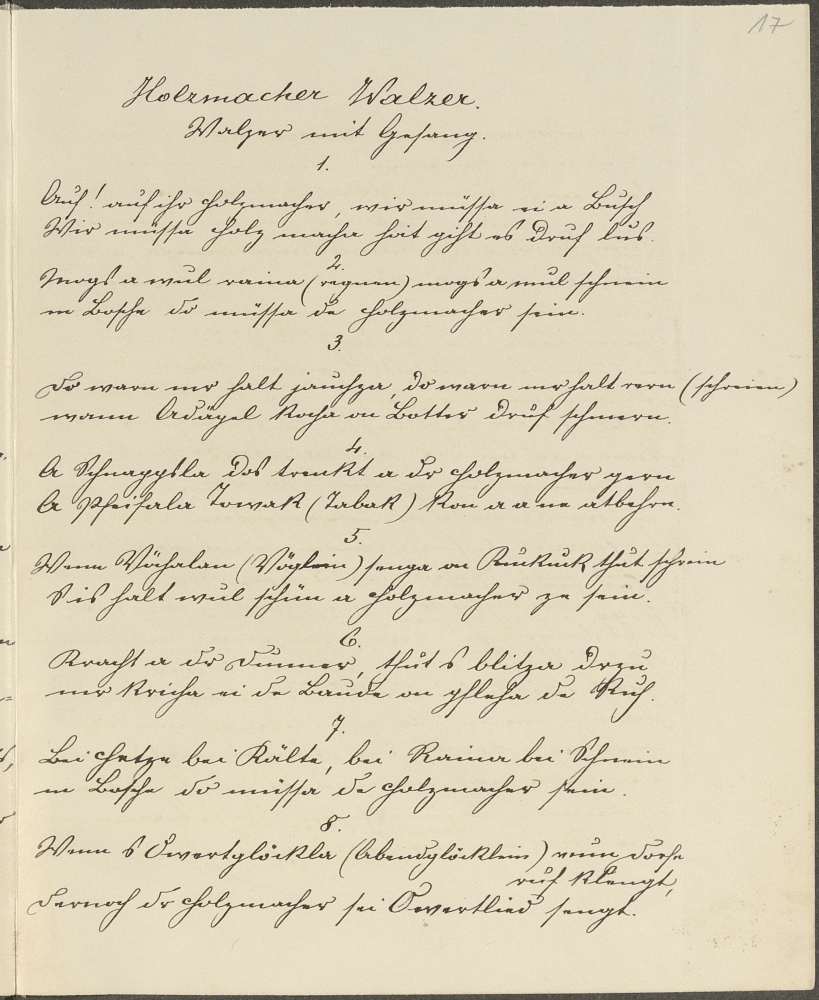 17
Holzmacher Walzer.
Walzer mit Gesang.
1.
Auf! auf ihr Holzmacher, wir müssa ei a Busch
Wir müssa Holz macha heit giht es druf lus.
2.
Mogs a wul raina (regnen) mogs a wul schnein
m Bosche do müssa de Holzmacher sein.
3.
Do warn mr halt jauchza, do warn mr halt rern (schreien)
wann Adäpel Kocha on Botter druf schmern.
4.
A Schnappsla dos trenkt a dr Holzmacher gern
A Pfeifala Towak (Tabak) kon a a ne atbehrn.
5.
Wenn Vöchalan (Vöglein) senga on Kuckuck thut schrein
S is halt wul schün a Holzmacher ze sein.
6.
Kracht a dr Dunner, thut s blitza drzu
mr kricha ei de Baude on pflega de Ruh.
7.
Bei Hetze bei Kälte, bei Raina bei Schnein
m Bosche do müssa de Holzmacher sein.
8.
Wenn s Owertglöckla (Abendglöcklein) vum Dorfe
ruf klengt,
dernoch dr Holzmacher sei Owertlied sengt.